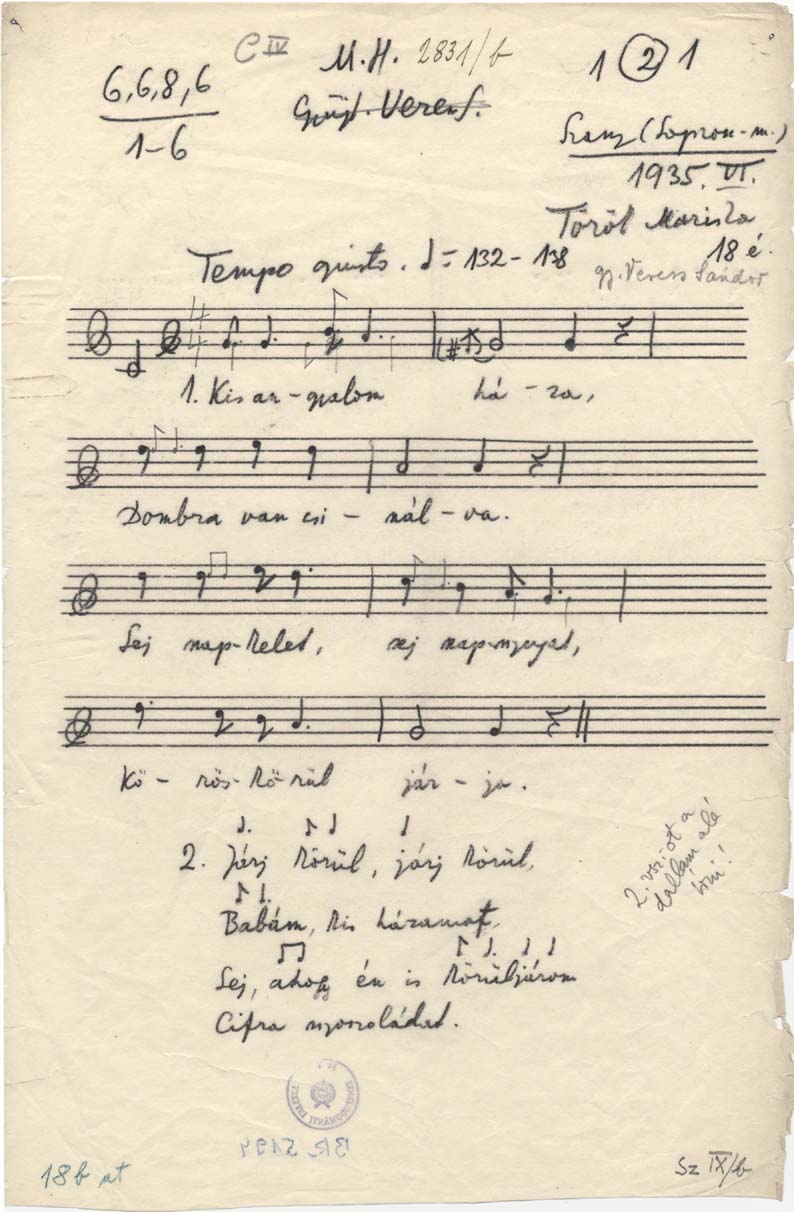 C IV
M.H. 2831/b
1 2 1
6,6,8,6
1-6
Gyüjt. Veress S.
Szany (Sopron-m.)
1935. VI.
Töröl Mariska
18 é.
gy. Veress Sándor
Tempo giusto. = 132 - 138
4
4
1. Kis an-gyalom há-za,
Dombra van csi-nál-va.
Sej nap-kelet, sej nap-nyugat,
Kö-rös-kö-rül jár-ja.
2. Járj körül, járj körül,
Babám, kis házamat,
Sej, ahogy én is körüljárom
Cifra nyoszoládat.
2. vsz-ot a
dallam alá
írni!
BR 5194
18 b at
Sz IX/b